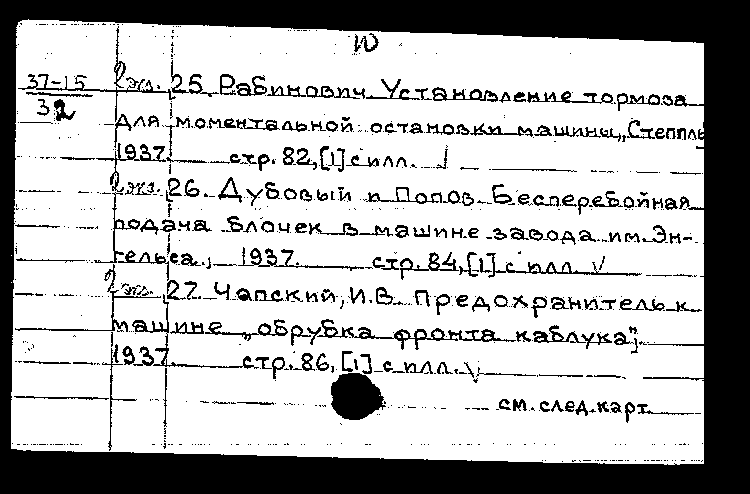 Ю
37-15
32
2 экз. 25. Рабинович. Установление тормоза
для моментальной остановки машины „Степпль
1937. стр. 82, [1] с илл. √
2 экз. 26. Дубовый и Попов. Бесперебойная
подача блочек в машине завода им. Эн-
гельса., 1937. стр. 84, [1] с илл. √
2 экз. 27. Чапский, И.В. Предохранитель к
машине „обрубка фронта каблука".
1937. стр. 86, [1] с илл. √
см. след. карт.